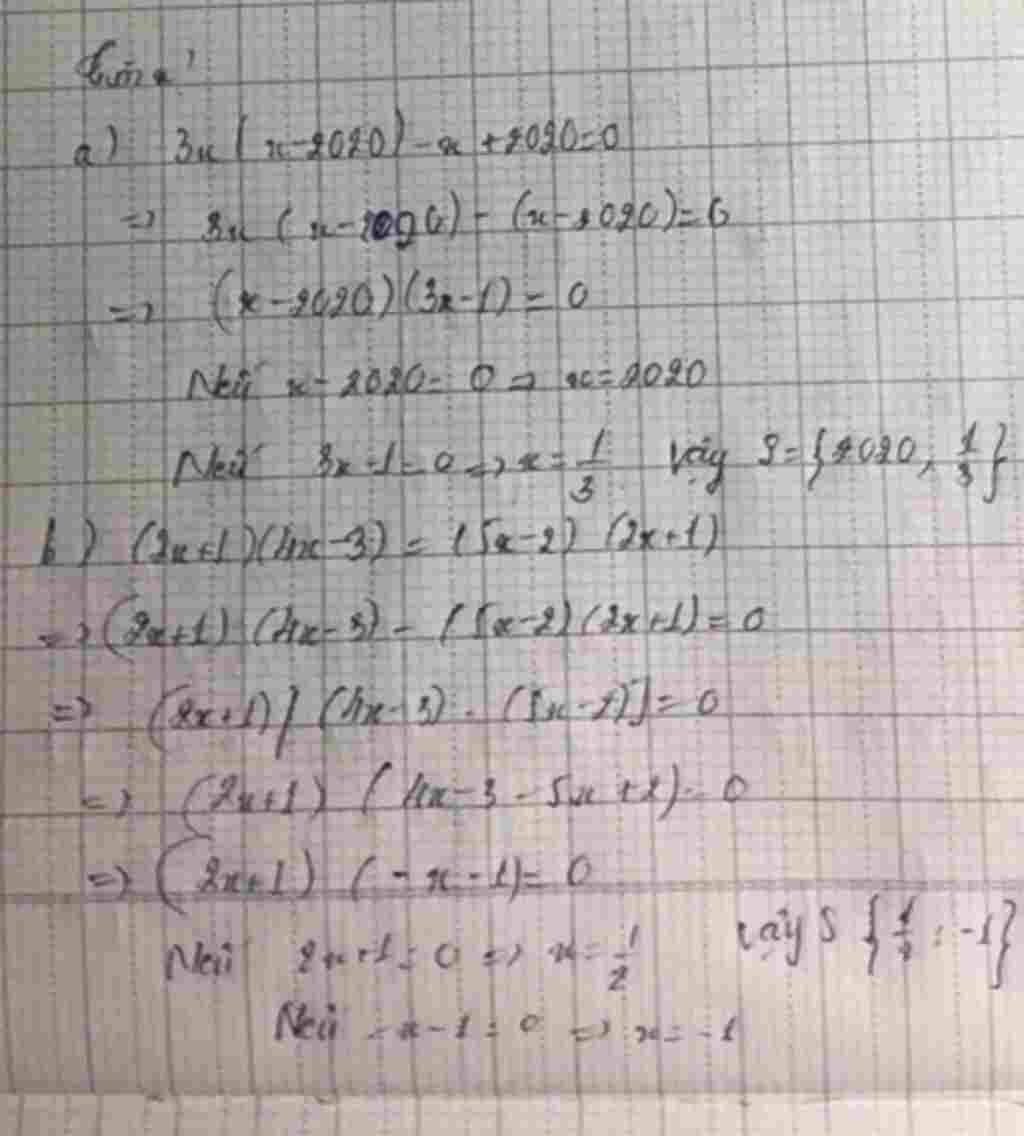 a) 3x(x-2020)-x+2020=0
=> 3x(x-2020)-(x-2020)=0
=> (x-2020)(3x-1)=0
Nếu x-2020=0 => x=2020
Nếu 3x-1=0 => x=1/3 Vậy S={2020, 1/3}
b) (2x+1)(4x-3)=(5x-2)(2x+1)
=> (2x+1)(4x-3)-(5x-2)(2x+1)=0
=> (2x+1)[(4x-3)-(5x-2)]=0
=> (2x+1)(4x-3-5x+2)=0
=> (2x+1)(-x-1)=0
Nếu 2x+1=0 => x=1/2 Vậy S {1/2; -1}
Nếu -x-1=0 => x=-1